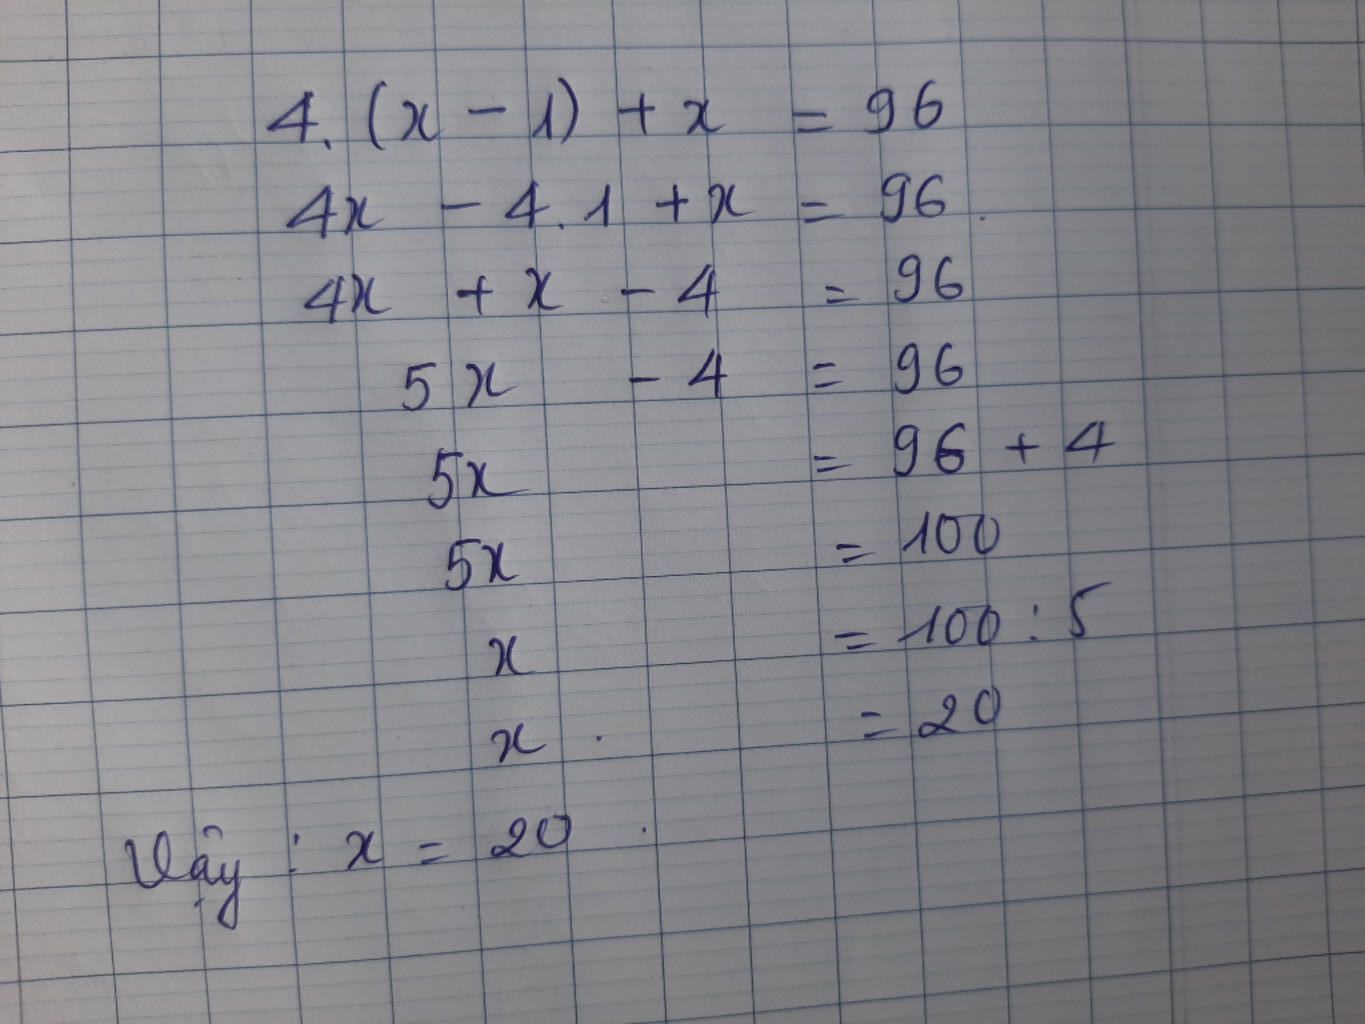 4. (x - 1) + x = 96
4x - 4.1 + x = 96
4x + x - 4 = 96
5x - 4 = 96
5x = 96 + 4
5x = 100
x = 100 : 5
x = 20
Vậy : x = 20